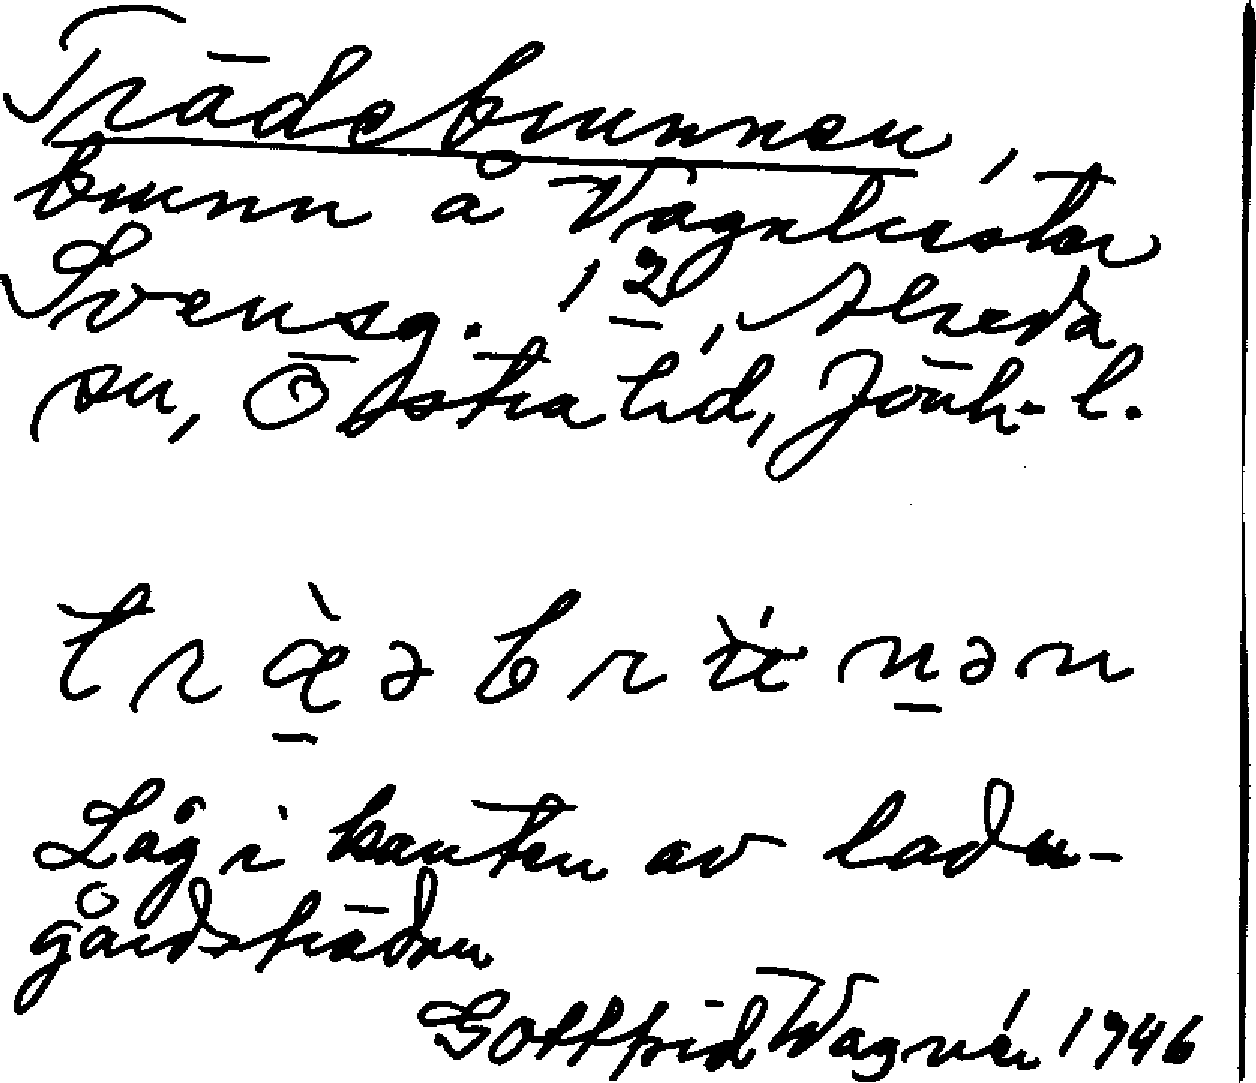 Trädebrunnen,
brunn å Vägalustar
Svensg. 1/2, Alseda
sn, Östra hd, Jönk. l.
træ̀əbrùnən
Låg i kanten av ladu-
gårdsträden
Gottfrid Wagnér 1946